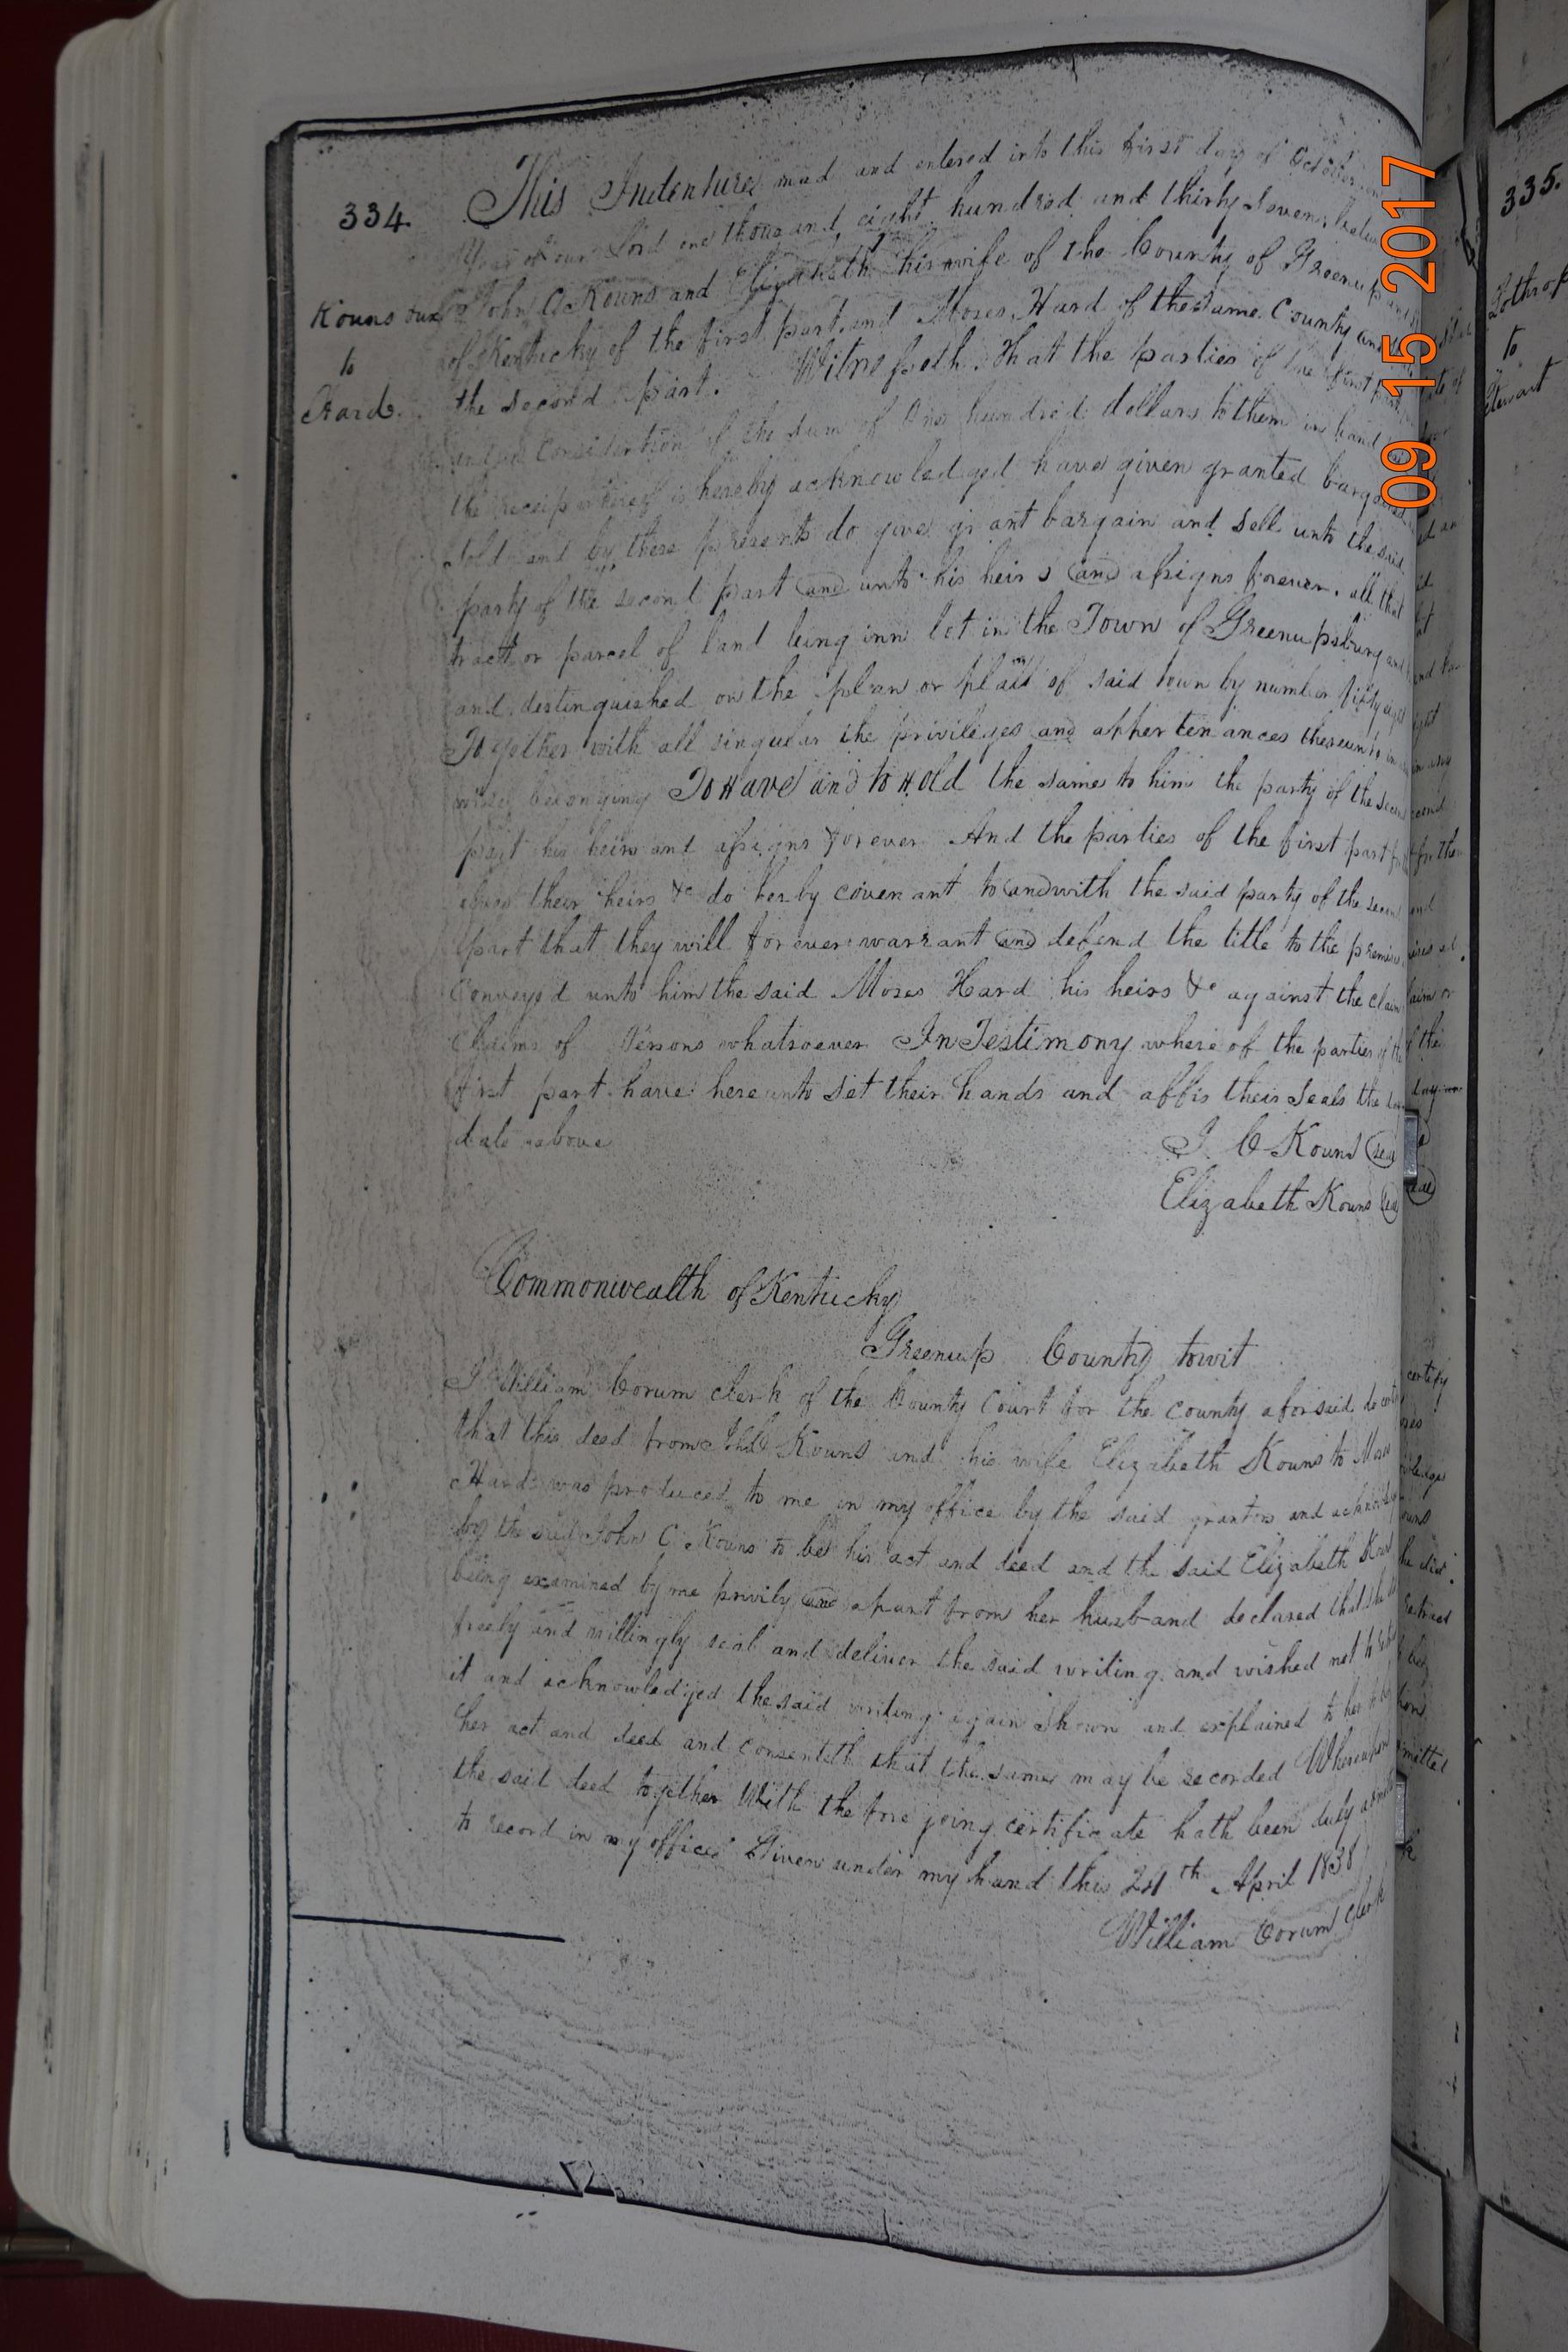 334.
Kouns &ux
to
Hard.
This Indenture mad and entered into this first day of October
Year of our Lord one thousand, eight hundred and thirty Seven, betw
John C Kouns and Elizabeth his wife of the County of Greenup and
of Kentucky of the first part and Moses Hard of the same County and
the second part. Witnesseth. That the parties of the first part
and in Consideration of the sum of One hundred dollars to them in hand
the receipt whereof is hereby acknowledged have given granted bargained
Sold and by these presents do give grant bargain and Sell unto the said
party of the second part and unto his heirs and assigns forever. all that
tract or parcel of land being inn lot in the Town of Greenupsburg and
and destinguished on the plan or platt of said town by number fifty eight
Together with all singular the privileges and appertenances thereunto in
wise belonging To Have and to Hold the same to him the party of the second
part his heirs and assigns forever And the parties of the first part for
their heirs &c do herby covenant to and with the said party of the second
part that they will forever warrant and defend the title to the premises
Conveyed unto him the said Moses Hard his heirs &c against the claim
Claims of Persons whatsoever In Testimony where of the parties of the
first part have hereunto set their hands and affix their Seals the day
date above
J. C Kouns (seal
Elizabeth Kouns (seal
Commonwealth of Kentucky
Greenup County towit
I William Corum clerk of the County Court for the county aforsaid do certify
that this deed from John C Kouns and his wife Elizabeth Kouns to Moses
Hard was produced to me in my office by the said grantors and acknowledged
by the said John C Kouns to be his act and deed and the said Elizabeth Kouns
being examined by me privily and apart from her husband declared that she did
freely and willingly seal and deliver the said writing and wished not to retract
it and acknowledged the said writing again shown and explained to her to be
her act and deed and consenteth that the same may be recorded Whereupon
the said deed together With the fore going certificate hath been duly admitted
to record in my office Given under my hand this 24th April 1838
William Corum Clerk
335.
Lothrop
to
Stewart
09 15 2017